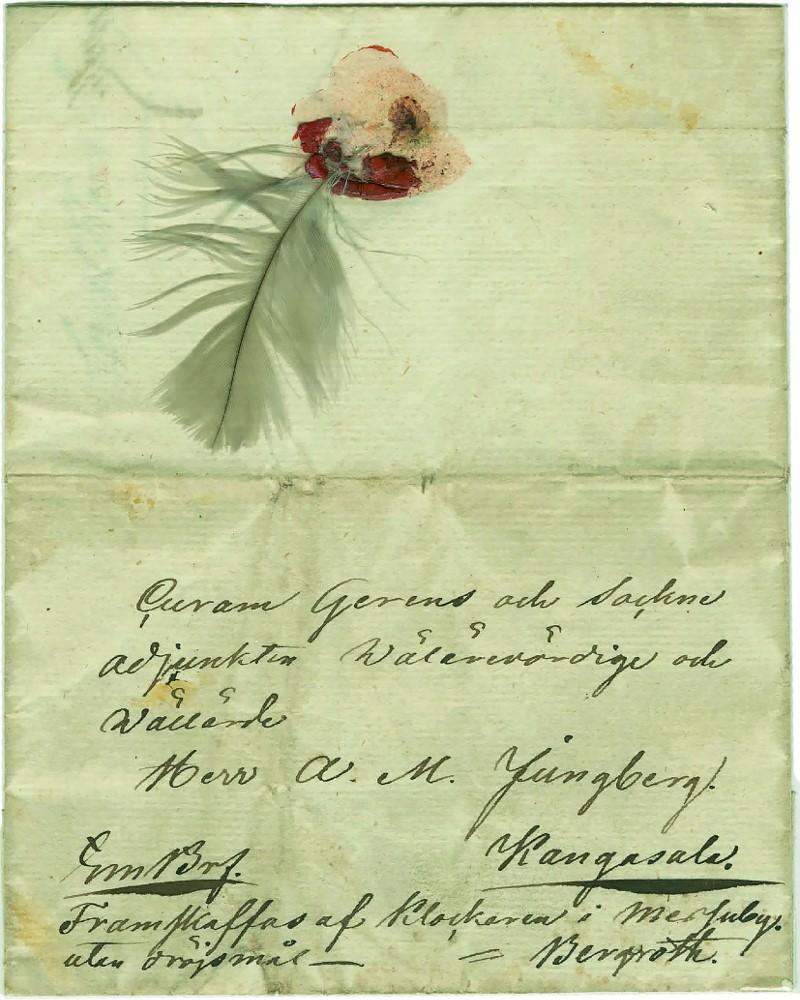 Curam Gerens och Sockne
adjunkten Wälärevördige och
Wällärde
Herr A. M. Jungberg.
Kangasala.
Framskaffas af Klockaren i
utan dröjsmål — = Bergroth.